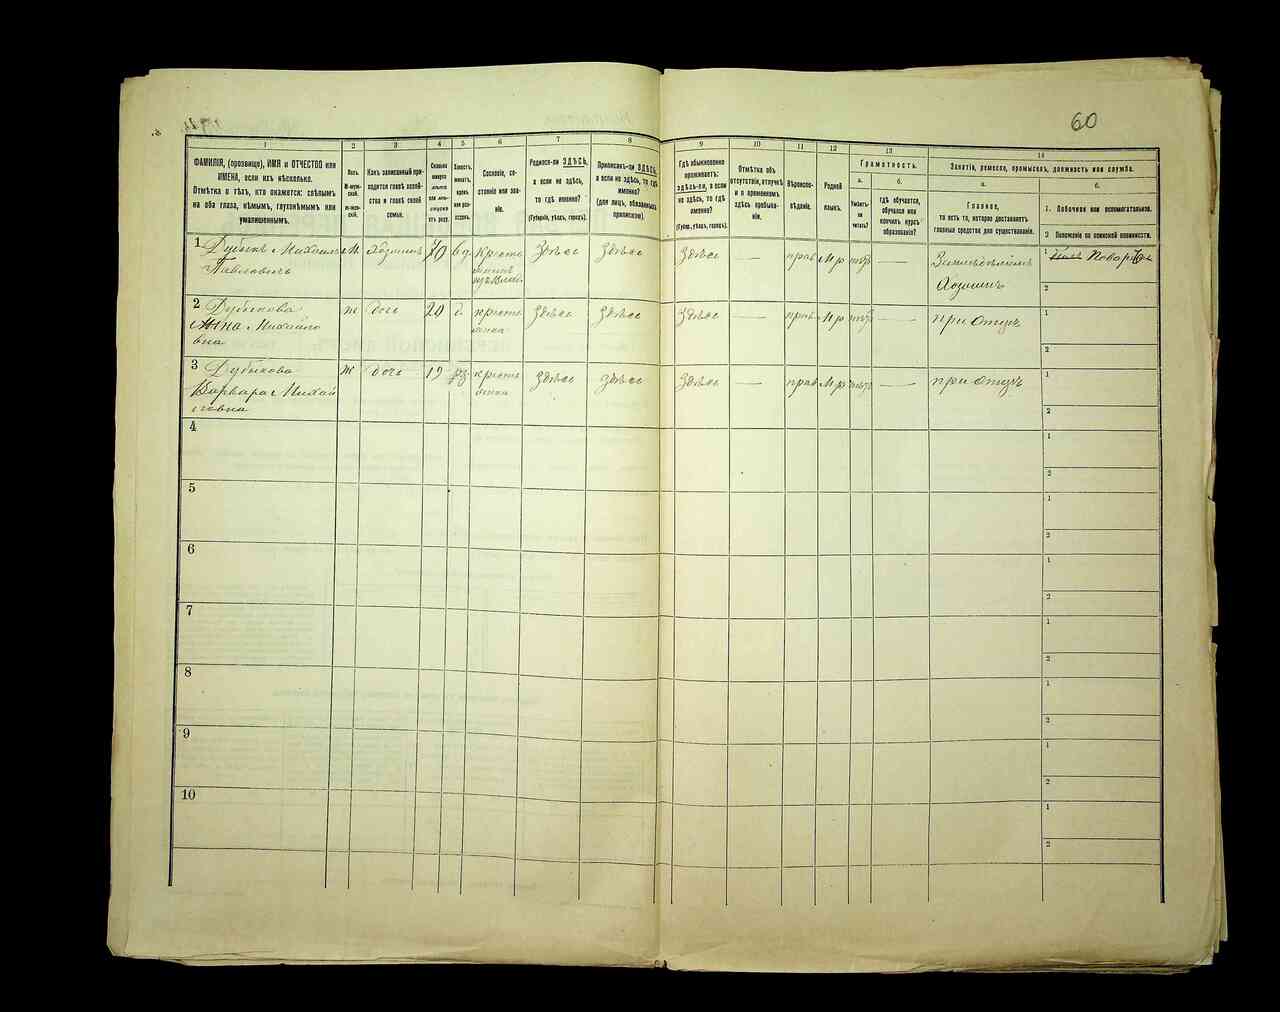 60
1
2
3
4
5
6
7
8
9
10
11
12
13
14
ФАМИЛІЯ, (прозвище), ИМЯ и ОТЧЕСТВО или
ИМЕНА, если ихъ нѣсколько.
Отмѣтка о тѣхъ, кто окажется: слѣпымъ
на оба глаза, нѣмымъ, глухонѣмымъ или
умалишеннымъ.
Полъ.
М-муж-
ской.
Ж-жен-
скій.
Какъ записанный при-
ходится главѣ хозяй-
ства и главѣ своей
семьи.
Сколько
минуло
лѣтъ
или мѣс.
отъ роду.
Холостъ,
женатъ,
вдовъ
или раз-
веденъ.
Сословіе, со-
стояніе или зва-
ніе.
Родился-ли ЗДѢСЬ,
а если не здѣсь,
то гдѣ именно?
(Губернія, уѣздъ, городъ).
Приписанъ-ли ЗДѢСЬ,
а если не здѣсь, то гдѣ
именно?
(для лицъ, обязанныхъ
припискою).
Гдѣ обыкновенно
проживаетъ:
ЗДѢСЬ-ЛИ, а если
не здѣсь, то гдѣ
именно?
(Губерн., уѣздъ, городъ).
Отмѣтка объ
отсутствіи, отлучкѣ
и о временномъ
здѣсь пребыва-
ніи.
Вѣроиспо-
вѣданіе.
Родной
языкъ.
Грамотность.
а.
Умѣетъ-
ли
читать?
б.
гдѣ обучается,
обучался или
кончилъ курсъ
образованія?
Занятіе, ремесло, промыселъ, должность или служба.
а.
Главное,
то есть то, которое доставляетъ
главныя средства для существованія.
б.
1. Побочное или вспомогательное.
2. Положеніе по воинской повинности.
1 Дубыкъ Михаилъ М хозяинъ 70 вд. Кресть здѣсь здѣсь здѣсь — прав Мр — Земледѣліемъ 1
Павловичъ Хозяинъ 2
2 Дубыкова ж дочь 20 кресть здѣсь здѣсь здѣсь — прав Мр — при отцѣ 1
Анна Михайло
вна 2
3 Дубыкова Ж дочь 19 кресть здѣсь здѣсь здѣсь — прав Мр — при отцѣ 1
Варвара Михай
ловна 2
4 1
2
5 1
2
6 1
2
7 1
2
8 1
2
9 1
2
10 1
2